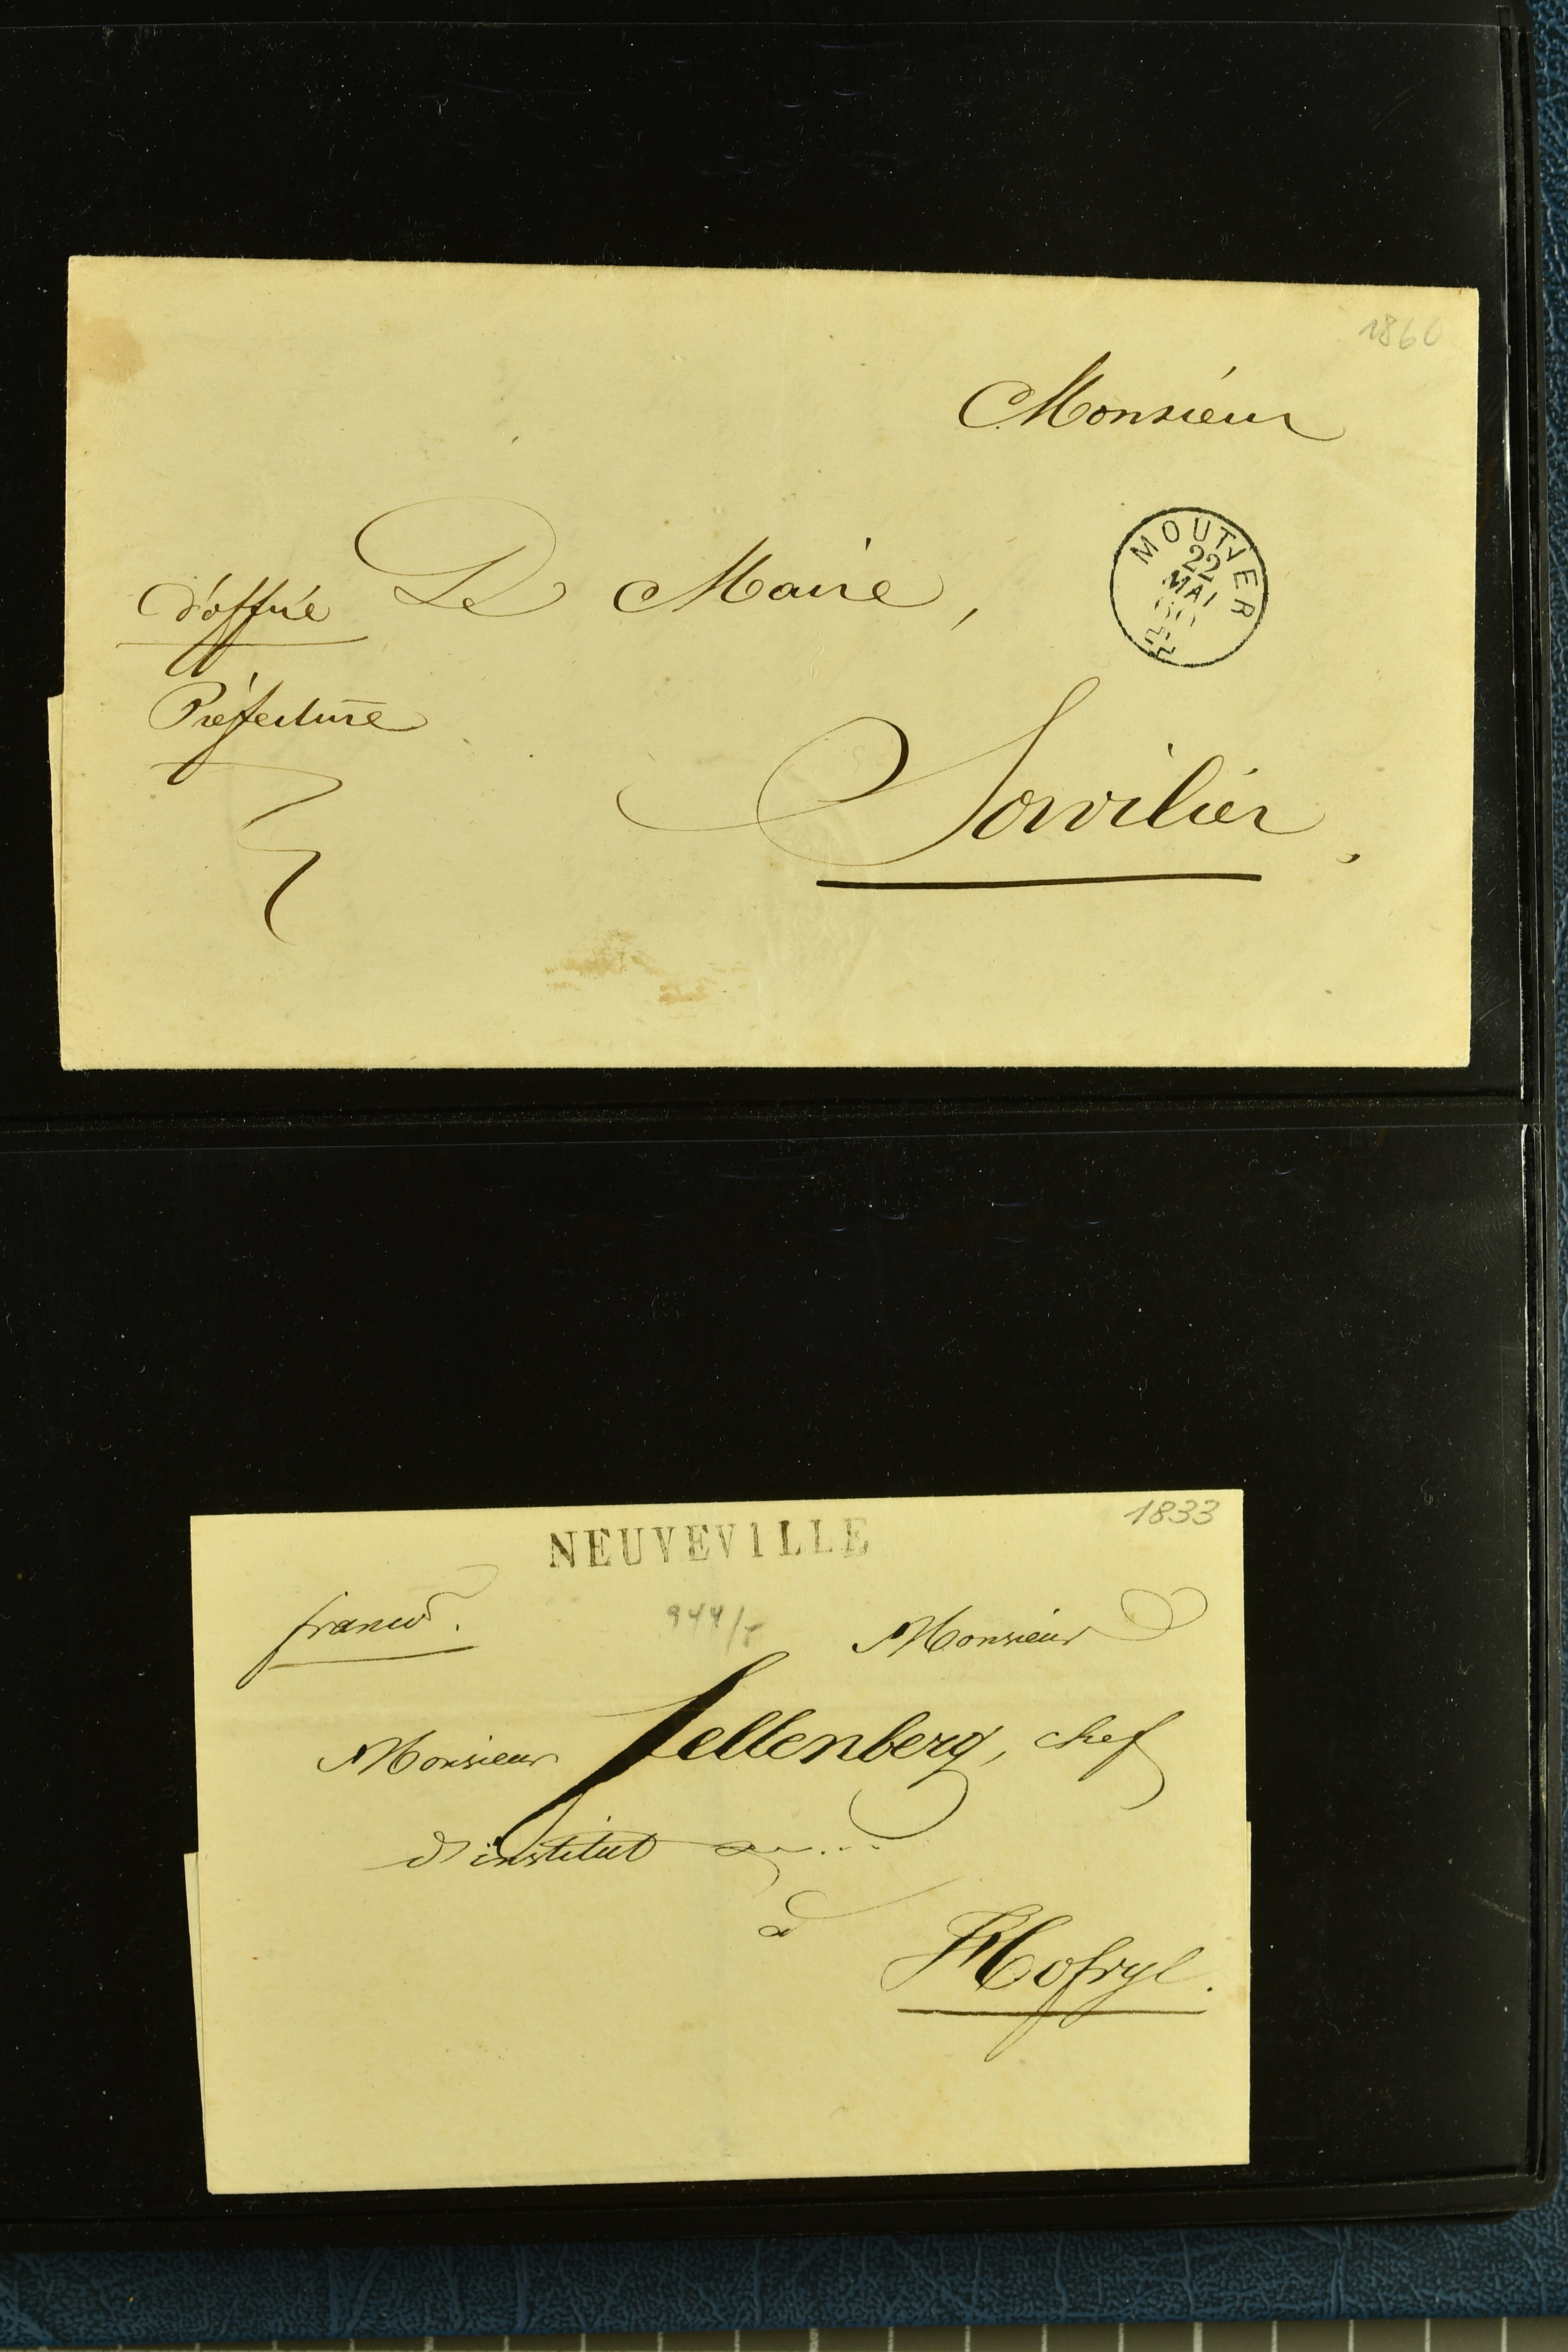 1860
Monsieur
MOUTIER
22
MAI
60
d'office Le Maire,
Préfecture
Sorvilier,
1833
NEUVEVILLE
franco.
944/
Monsieur
Monsieur Fellenberg, chef
d'institut
à
Hofwyl.